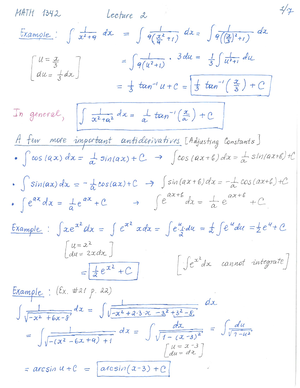 MATH 1342 Lecture 2 1/7
Example: ∫ 1/(x²+9) dx = ∫ 1/(9(x²/9+1)) dx = ∫ 1/(9((x/3)²+1)) dx
[u = x/3 = ∫ 1/(9(u²+1)) · 3du = 1/3 ∫ 1/(u²+1) du
du = 1/3 dx] = 1/3 tan⁻¹ u + C = 1/3 tan⁻¹(x/3) + C
In general, ∫ 1/(x²+a²) dx = 1/a tan⁻¹(x/a) + C
A few more important antiderivatives [Adjusting Constants]
• ∫ cos(ax) dx = 1/a sin(ax) + C → ∫ cos(ax+b) dx = 1/a sin(ax+b) + C
• ∫ sin(ax) dx = -1/a cos(ax) + C → ∫ sin(ax+b) dx = -1/a cos(ax+b) + C
• ∫ e^(ax) dx = 1/a e^(ax) + C → ∫ e^(ax+b) dx = 1/a e^(ax+b) + C
Example: ∫ x e^(x²) dx = ∫ e^(x²) x dx = ∫ e^u 1/2 du = 1/2 ∫ e^u du = 1/2 e^u + C
[u = x²
du = 2x dx]
= 1/2 e^(x²) + C [∫ e^(x²) dx cannot integrate]
Example: (Ex. #21 p. 22)
∫ 1/√(-x²+6x-8) dx = ∫ 1/√(-x²+2·3·x-3²+3²-8) dx
= ∫ 1/√(-(x²-6x+9)+1) dx = ∫ dx/√(1-(x-3)²) = ∫ du/√(1-u²)
[u = x-3
du = dx]
= arcsin u + C = arcsin(x-3) + C